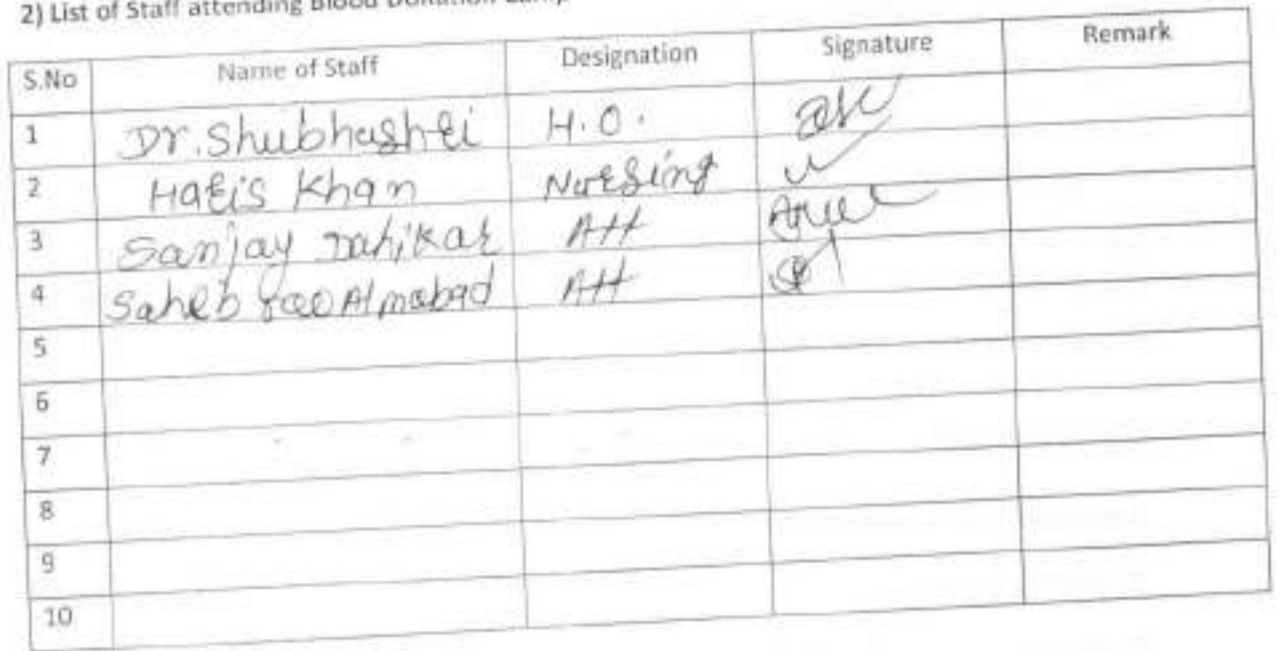 2) List of Staff attending Blood Donation Camp
S.No Name of Staff Designation Signature Remark
1 Dr. Shubhashri H.O.
2 Haris Khan Nursing
3 Sanjay Dahikar Att
4 Saheb rao Almabad Att
5
6
7
8
9
10